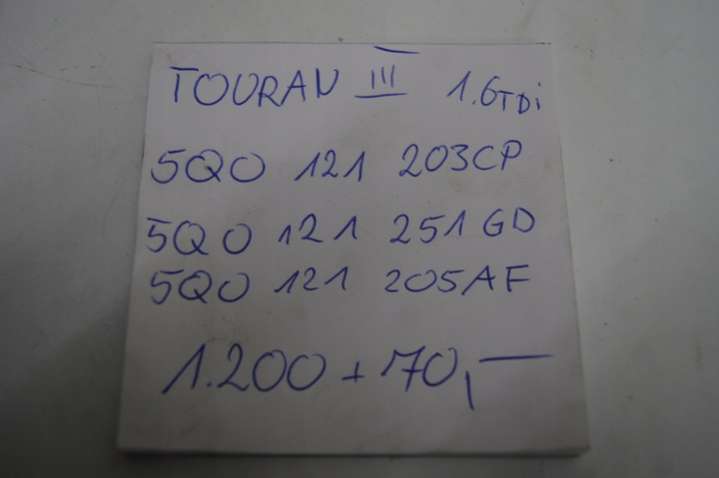 TOURAN III 1.6TDi
5Q0 121 203CP
5Q0 121 251GD
5Q0 121 205AF
1.200 + 70,—